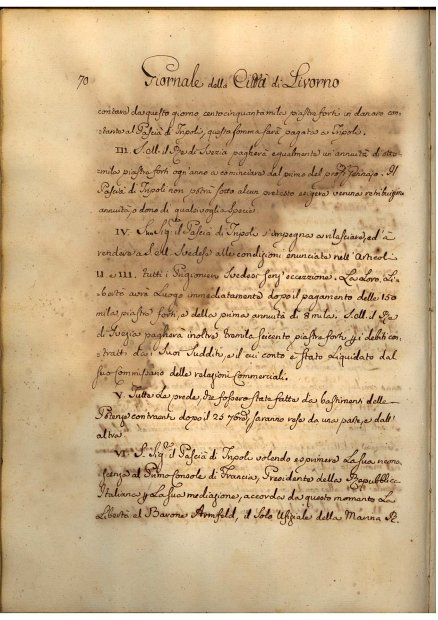 70 Giornale della Città di Livorno
contare da questo giorno, centocinquantamila piastre forti in danaro con-
tante al Pascià di Tripoli, questa somma sarà pagata a Tripoli.
III. S. M. il Re di Svezia pagherà egualmente un'annuità di otto-
mila piastre forti ogni anno a cominciare dal primo del pross.º Gennajo. Il
Pascià di Tripoli non potrà sotto alcun pretesto esigere veruna retribuzione
annuità o dono di qualsivoglia specie.
IV. Sua Sig.ª il Pascià di Tripoli s'impegna a rilasciare, ed a
rendere a S. M. Svedese alle condizioni enunciate nell'Articoli
II e III. tutti i Prigionieri Svedesi senz'eccezzione. La loro Li-
bertà avrà luogo immediatamente dopo il pagamento delle 150
mila piastre forti, e della prima annuità di 8 mila. S. M. il Re
di Svezia pagherà inoltre tremila seicento piastre forti p i debiti con-
tratti dai suoi Sudditi, e il cui conto è stato liquidato dal
suo commissario delle relazioni Commerciali.
V. Tutte le prede, che fossero state fatte da bastimenti delle
Potenze contraenti dopo il 25 7bre, saranno rese da una parte, e dall'
altra.
VI. S. Sig.ª il Pascià di Tripoli volendo esprimere la sua ricono-
scenza al Primo Console di Francia, Presidente della Repubblica
Italiana p la sua mediazione, accorda da questo momento la
Libertà al Barone Armfeld, il solo Ufiziale della Marina R.